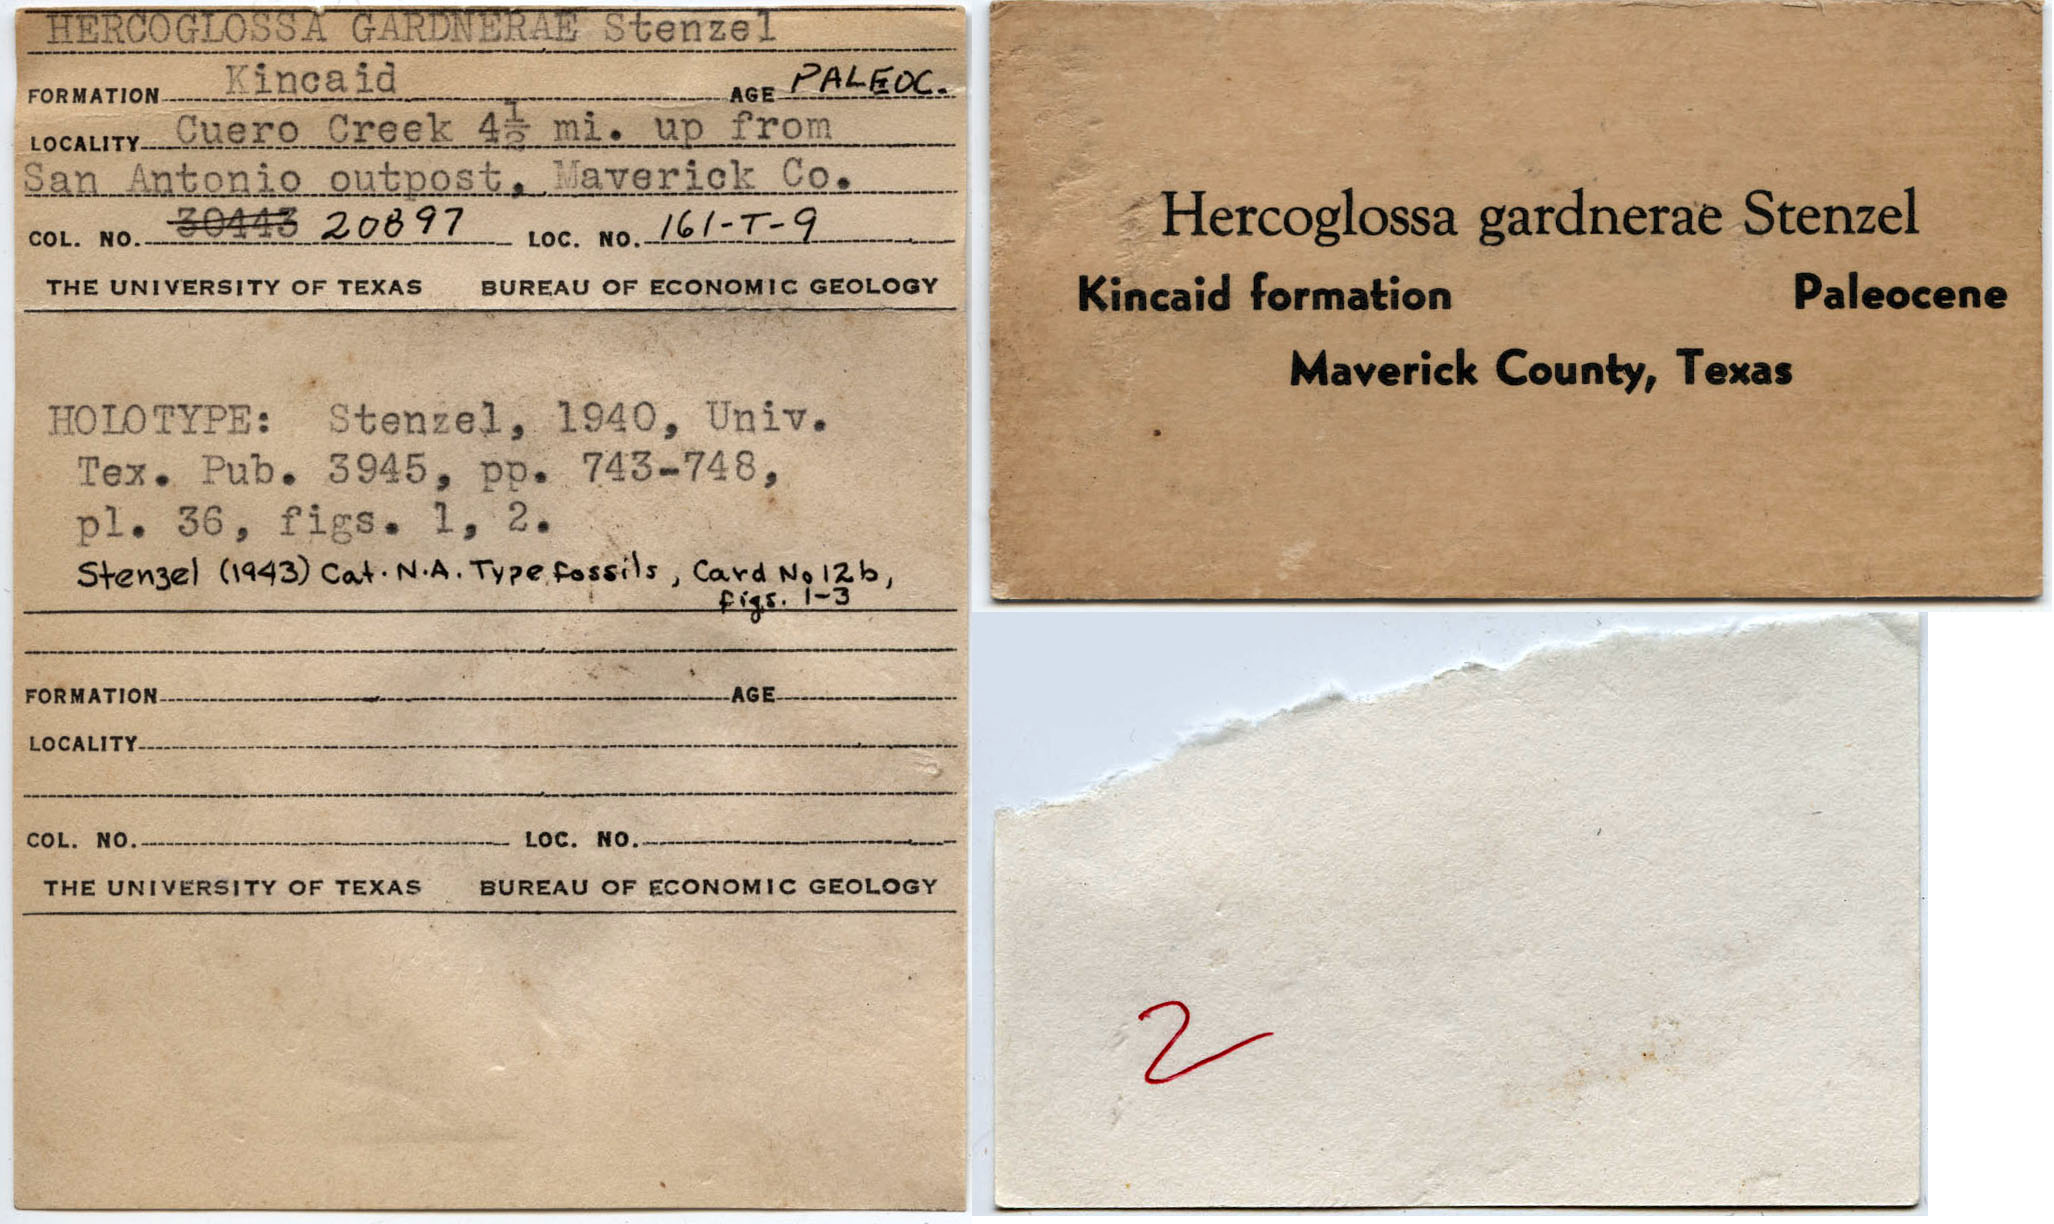 HERCOGLOSSA GARDNERAE Stenzel
FORMATION Kincaid AGE PALEOC.
LOCALITY Cuero Creek 4½ mi. up from
San Antonio outpost, Maverick Co.
COL. NO. 30443 20897 LOC. NO. 161-T-9
THE UNIVERSITY OF TEXAS BUREAU OF ECONOMIC GEOLOGY
HOLOTYPE: Stenzel, 1940, Univ.
Tex. Pub. 3945, pp. 743-748,
pl. 36, figs. 1, 2.
Stenzel (1943) Cat. N.A. Type fossils, Card No 12b,
figs. 1-3
FORMATION AGE
LOCALITY
COL. NO. LOC. NO.
THE UNIVERSITY OF TEXAS BUREAU OF ECONOMIC GEOLOGY
Hercoglossa gardnerae Stenzel
Kincaid formation Paleocene
Maverick County, Texas
2